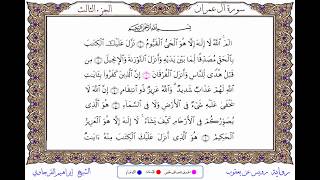 سورة آل عمران
الجزء الثالث
بسم الله الرحمن الرحيم
الٓمٓ ٱللَّهُ لَآ إِلَٰهَ إِلَّا هُوَ ٱلْحَيُّ ٱلْقَيُّومُ ۝ نَزَّلَ عَلَيْكَ ٱلْكِتَٰبَ
بِٱلْحَقِّ مُصَدِّقًا لِّمَا بَيْنَ يَدَيْهِ وَأَنزَلَ ٱلتَّوْرَىٰةَ وَٱلْإِنجِيلَ ۝ مِن
قَبْلُ هُدًى لِّلنَّاسِ وَأَنزَلَ ٱلْفُرْقَانَ ۝ إِنَّ ٱلَّذِينَ كَفَرُوا۟ بِـَٔايَٰتِ
ٱللَّهِ لَهُمْ عَذَابٌ شَدِيدٌ وَٱللَّهُ عَزِيزٌ ذُو ٱنتِقَامٍ ۝ إِنَّ ٱللَّهَ لَا
يَخْفَىٰ عَلَيْهِ شَىْءٌ فِى ٱلْأَرْضِ وَلَا فِى ٱلسَّمَآءِ ۝ هُوَ ٱلَّذِى
يُصَوِّرُكُمْ فِى ٱلْأَرْحَامِ كَيْفَ يَشَآءُ لَآ إِلَٰهَ إِلَّا هُوَ ٱلْعَزِيزُ
ٱلْحَكِيمُ ۝ هُوَ ٱلَّذِىٓ أَنزَلَ عَلَيْكَ ٱلْكِتَٰبَ مِنْهُ ءَايَٰتٌ
رواية رويس عن يعقوب
الشيخ إبراهيم الفرجاوي